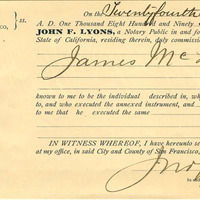 On the Twentyfourth
co, } ss.
A. D. One Thousand Eight Hundred and Ninety
JOHN F. LYONS, a Notary Public in and for
State of California, residing therein, duly commissio
James Mc
known to me to be the individual described in, wh
to, and who executed the annexed instrument, and
to me that he executed the same
IN WITNESS WHEREOF, I have hereunto se
at my office, in said City and County of San Francisco,
Jno